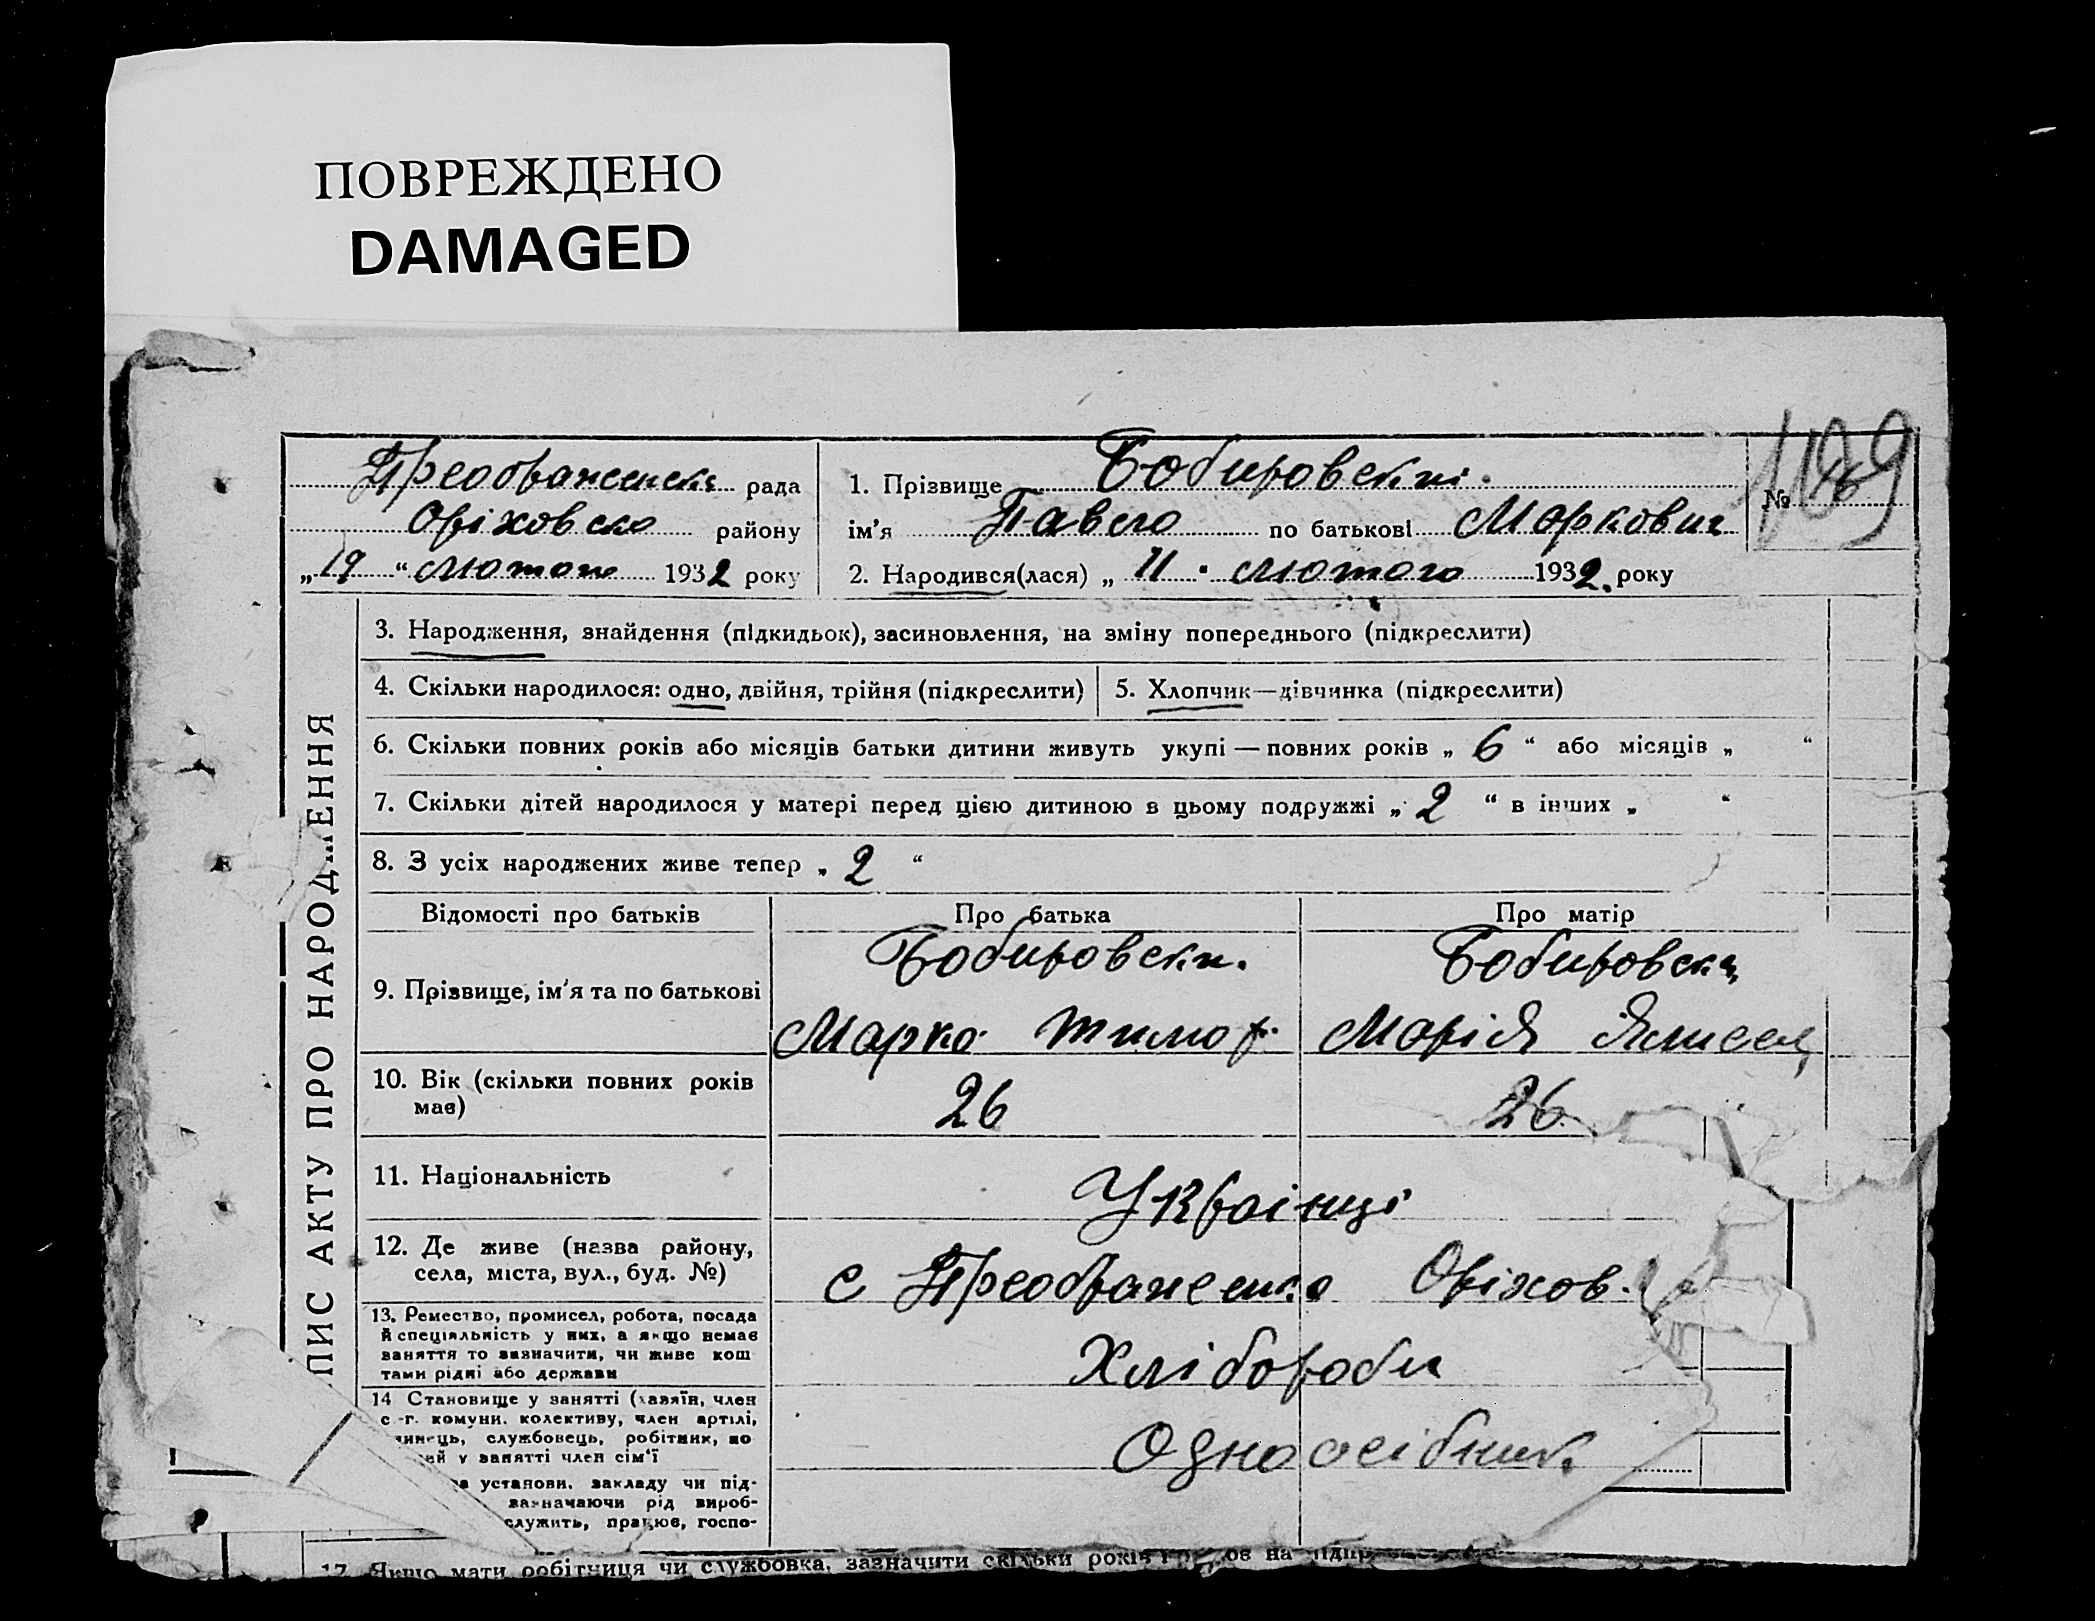 ПОВРЕЖДЕНО
DAMAGED
Преображенска рада
Оріховсько району
„19“ лютого 1932 року
1. Прізвище Бобировский.
ім’я Павло по батькові Маркович
2. Народився(лася) „11. лютого 1932. року
№
ПИС АКТУ ПРО НАРОДЖЕННЯ
3. Народження, знайдення (підкидьок), засиновлення, на зміну попереднього (підкреслити)
4. Скільки народилося: одно, двійня, трійня (підкреслити)
5. Хлопчик—дівчинка (підкреслити)
6. Скільки повних років або місяців батьки дитини живуть укупі — повних років „ 6 “ або місяців „ “
7. Скільки дітей народилося у матері перед цією дитиною в цьому подружжі „ 2 “ в інших „ “
8. З усіх народжених живе тепер „ 2 “
Відомості про батьків
Про батька
Про матір
9. Прізвище, ім’я та по батькові
Бобировски.
Марко Тимоф.
Бобировска
Марія
10. Вік (скільки повних років
має)
26
26
11. Національність
Українці
12. Де живе (назва району,
села, міста, вул., буд. №)
с Преображенка Оріхов.
13. Ремество, промисел, робота, посада
й спеціяльність у них, а якщо немає
заняття то зазначити, чи живе кош
тами рідні або держави
Хлібороби
14 Становище у занятті (хазяїн, член
с.-г. комуни, колективу, член артілі,
службовець, робітник, по
у занятті член сім’ї
Одноосібник.
установи, закладу чи під-
зазначаючи рід вироб-
служить, працює, госпо-
17. Якщо мати робітниця чи службовка, зазначити скільки років